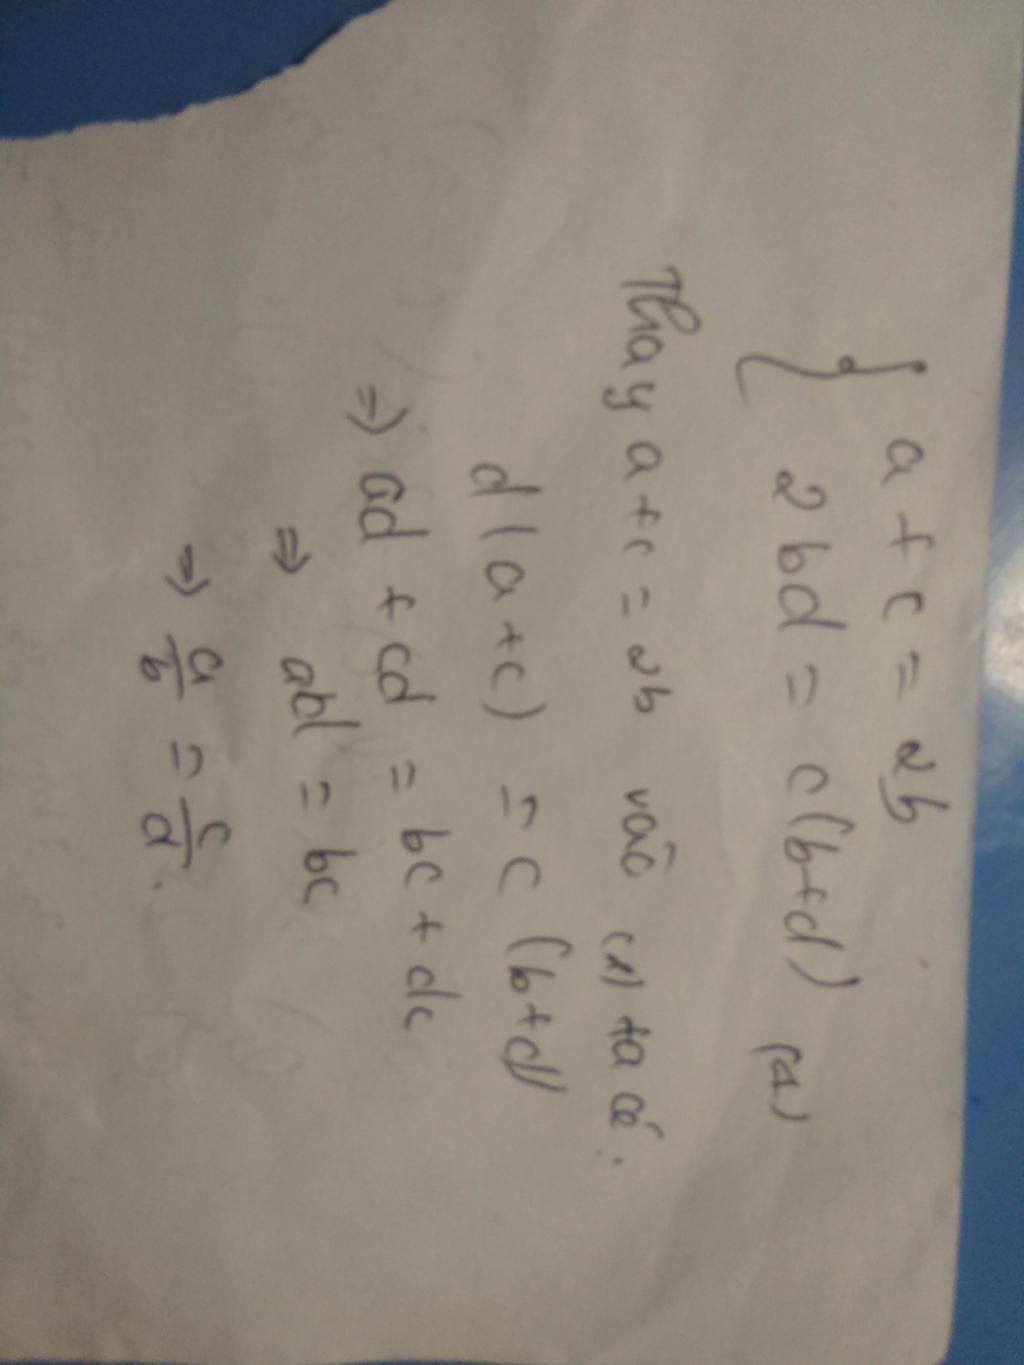 { a + c = 2b
2bd = c(b+d) (1)
Thay a + c = 2b vào (1) ta có :
d(a+c) = c (b+d)
=> ad + cd = bc + dc
=> ad = bc
=> a/b = c/d.